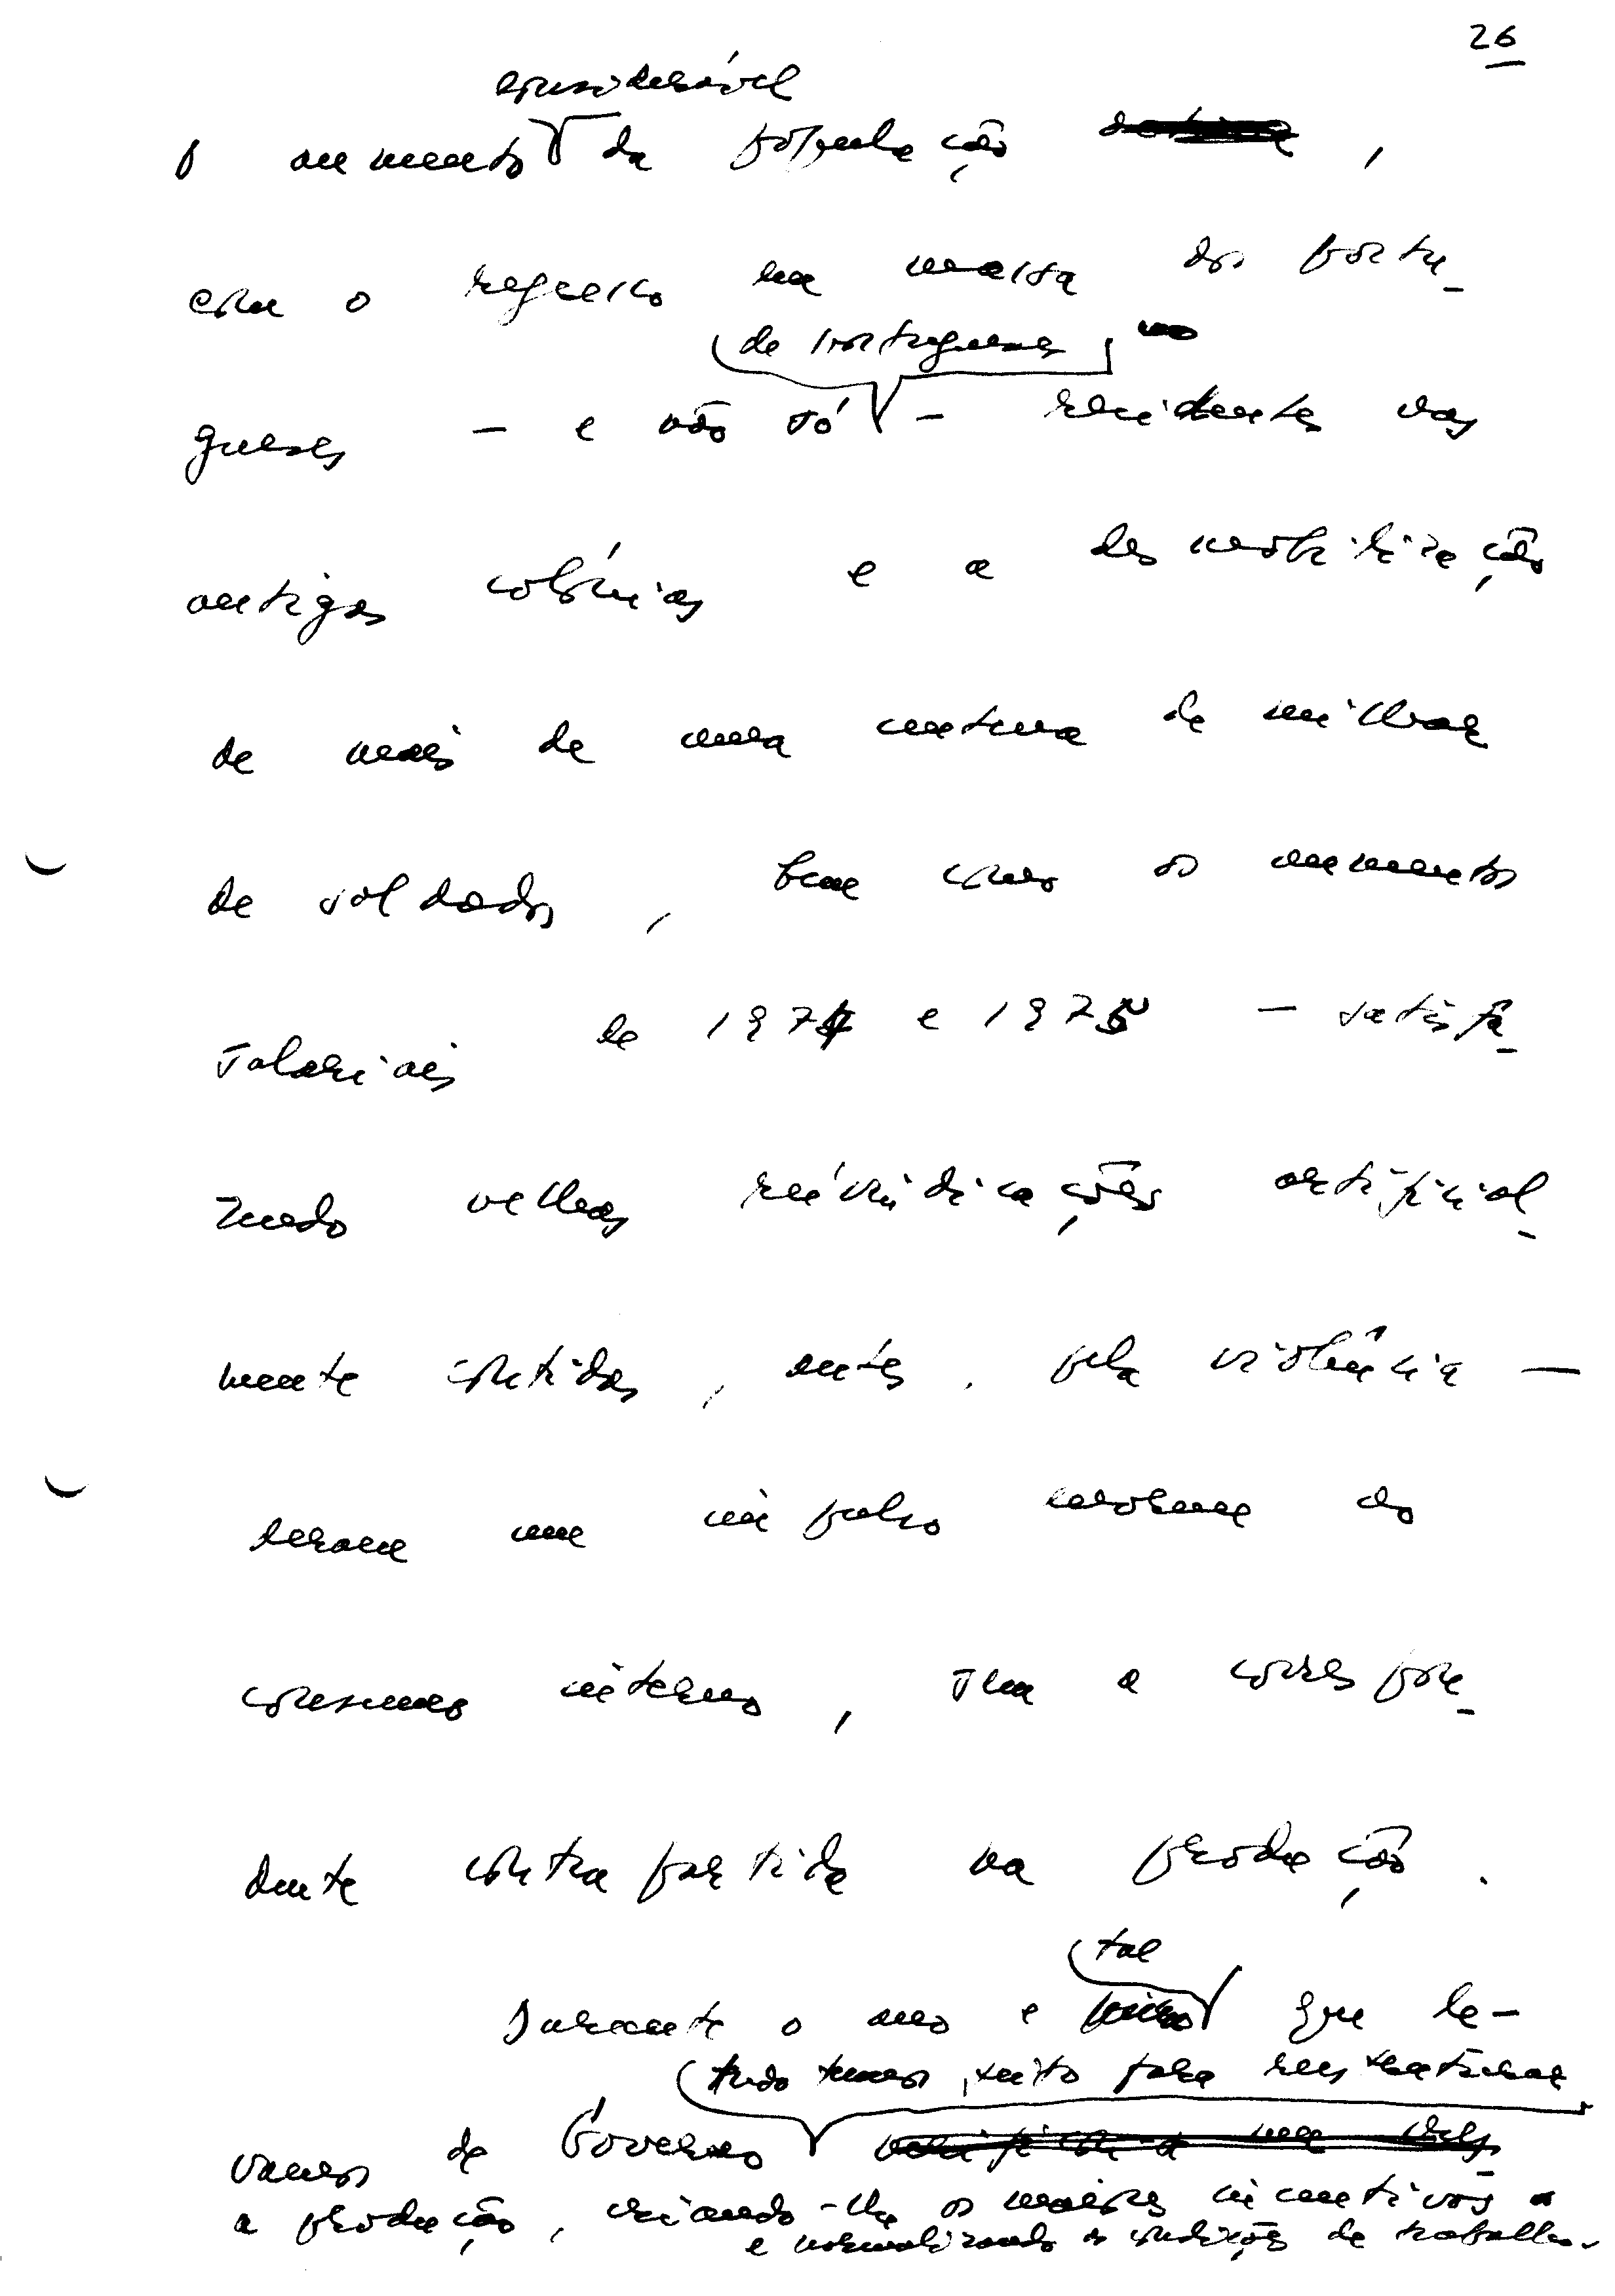 26
considerável
O aumento da população,
com o regresso em massa dos portu-
de portugueses
gueses — e não só — residentes nas
antigas colónias e a desmobilização
de mais de uma centena de milhar
de soldados, bem como os aumentos
salariais de 1974 e 1975 — satisfa-
zendo velhas reivindicações artificial-
mente contidas, antes, pela violência —
deram um impulso enorme ao
consumo interno, sem a correspon-
dente contrapartida na produção.
tal
Durante o ano e que le-
tudo temos feito para reestruturar
vamos de Governo
a produção, criando-lhe os maiores incentivos
e normalizando as condições de trabalho.